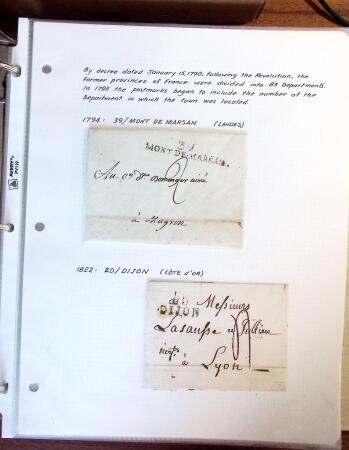 By decree dated January 15, 1790, following the Revolution, the
former provinces of France were divided into 83 Departments.
In 1792 the postmarks began to include the number of the
Department in which the town was located.
1794: 39/MONT DE MARSAN (LANDES)
MONT-DE-MARSAN.
2
Au
ainé
à Mugron
1822: 20/DIJON (CÔTE D'OR)
à Messieurs
DIJON
Lasausse et Jullien
à
Lyon